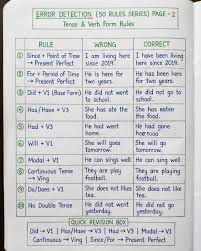 ERROR DETECTION (50 RULES SERIES) PAGE - 2
Tense & Verb Form Rules
RULE WRONG CORRECT
1 Since + Point of Time I am living here I have been living
→ Present Perfect since 2019. here since 2019.
2 For + Period of Time He is here for He has been here
→ Present Perfect two years. for two years.
3 Did + V1 (Base Form) He did not went He did not go
to school. to school.
4 Has/Have + V3 She has eat She has eaten
the food. the food.
5 Had + V3 He had went He had gone
home. home.
6 Will + V1 She will goes She will go
tomorrow. tomorrow.
7 Modal + V1 He can sings well. He can sing well.
8 Continuous Tense They are play They are playing
→ Ving football. football.
9 Do/Does + V1 She does not likes She does not like
tea. tea.
10 No Double Tense He did not went He did not go
yesterday. yesterday.
QUICK REVISION BOX
Did → V1 | Has/Have/Had → V3 | Will → V1 | Modal → V1
Continuous → Ving | Since/For → Present Perfect